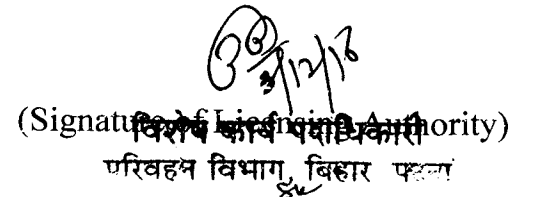 (Signature of Licensing Authority)
विशेष कार्य पदाधिकारी
परिवहन विभाग, बिहार पटना